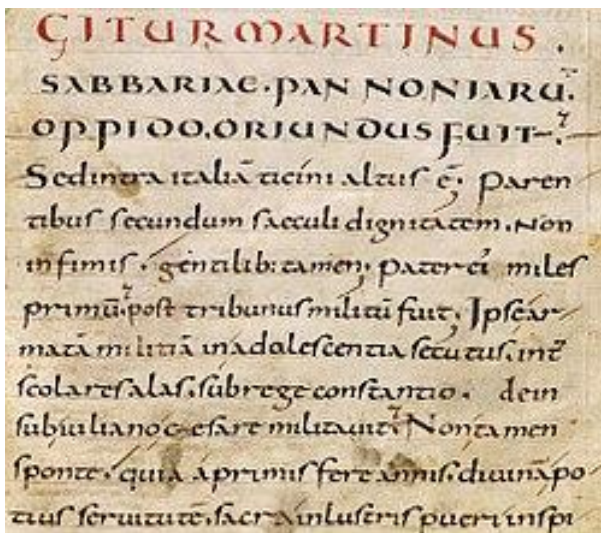 GITUR MARTINUS.
SABBARIAE. PANNONIARŪ.
OPPIDO. ORIUNDUS FUIT.
Sed intra italiā ticini altus ē. Paren
tibus secundum saeculi dignitatem. Non
infimis. gentilib; tamen; Pater ei miles
primū. post tribunus militū fuit; Ipse ar
matā militiā in adolescentia secutus. int
scolares alas. sub rege constantio. dein
sub iuliano cęsare militauit. Non tamen
sponte. quia a primis fere annis. diuinā po
tius seruitutē. sacra inlustris pueri inspi